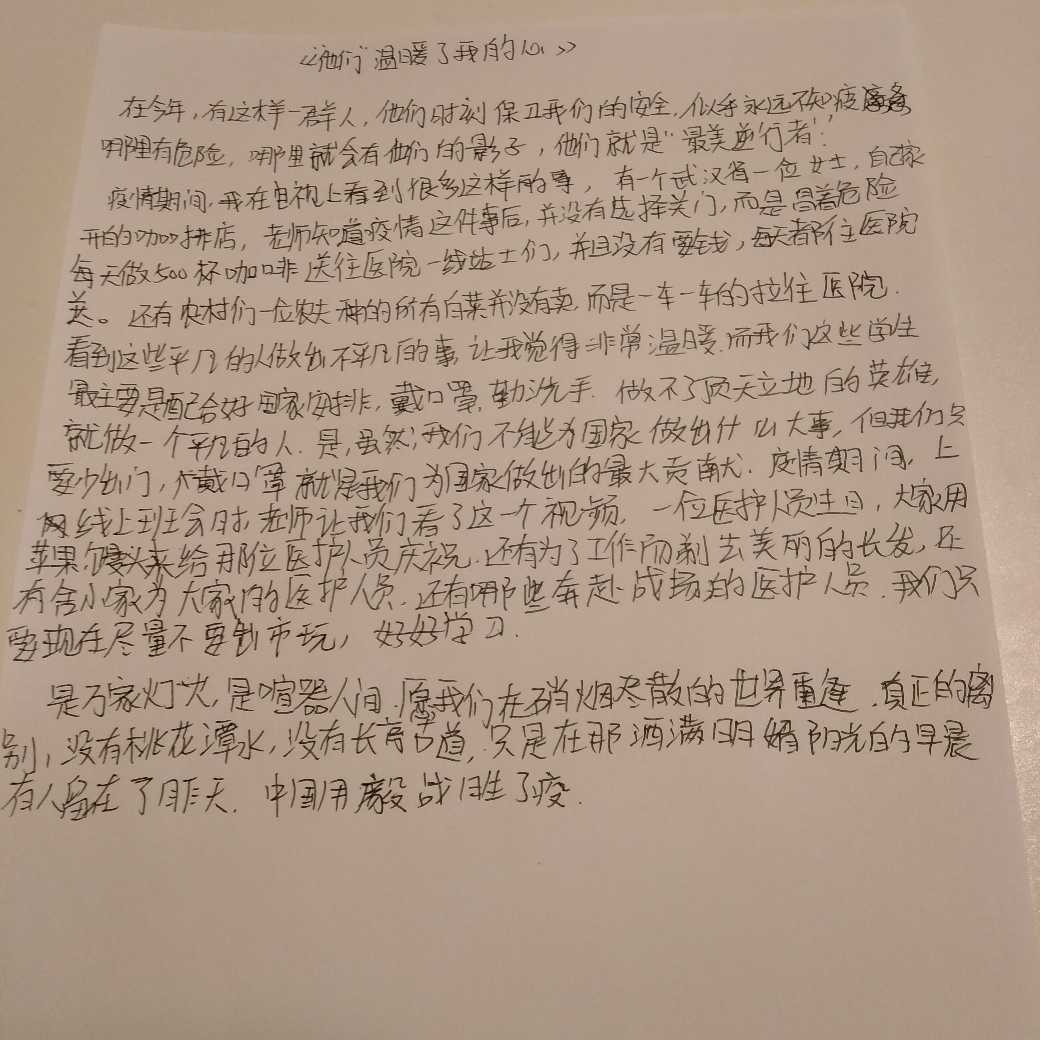 《“他们”温暖了我的心》
在今年,有这样一群人,他们时刻保卫我们的安全,似乎永远不知疲
哪里有危险,哪里就会有他们的影子,他们就是“最美逆行者”.
疫情期间,我在电视上看到很多这样的事,有一个武汉省一位女士,自己家
开的咖啡店,老师知道疫情这件事后,并没有选择关门,而是冒着危险
每天做500杯咖啡送往医院一线站士们,并且没有要钱,每天都往医院
送。还有农村们一位农夫种的所有白菜并没有卖,而是一车一车的拉往医院.
看到这些平凡的人做出不平凡的事,让我觉得非常温暖.而我们这些学生
最主要是配合好国家安排,戴口罩,勤洗手.做不了顶天立地的英雄,
就做一个平凡的人.是,虽然,我们不能为国家做出什么大事,但我们只
要少出门,戴口罩就是我们为国家做出的最大贡献.疫情期间,上
网线上班会时,老师让我们看了这一个视频,一位医护人员生日,大家用
苹果馒头来给那位医护人员庆祝.还有为了工作而剃去美丽的长发,还
有舍小家为大家的医护人员.还有哪些奔赴战场的医护人员.我们只
要现在尽量不要到市玩,好好学习.
是万家灯火,是喧嚣人间.愿我们在硝烟尽散的世界重逢.真正的离
别,没有桃花潭水,没有长亭古道,只是在那洒满阳光的早晨
有人留在了昨天.中国用毅战胜了疫.